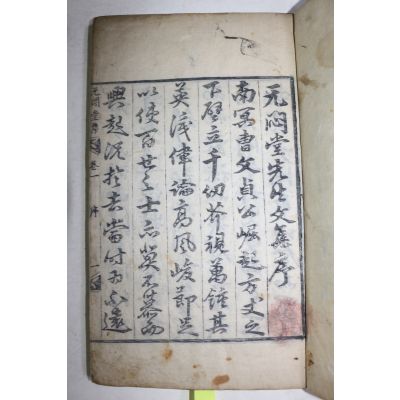 无悶堂先生文集序
南冥曺文貞公崛起方丈之
下壁立千仞芥視萬鍾其
英識偉論高風峻節足
以使百世之士而莫不慕而
興起況於去當時不遠
无悶堂集 卷一 序 一